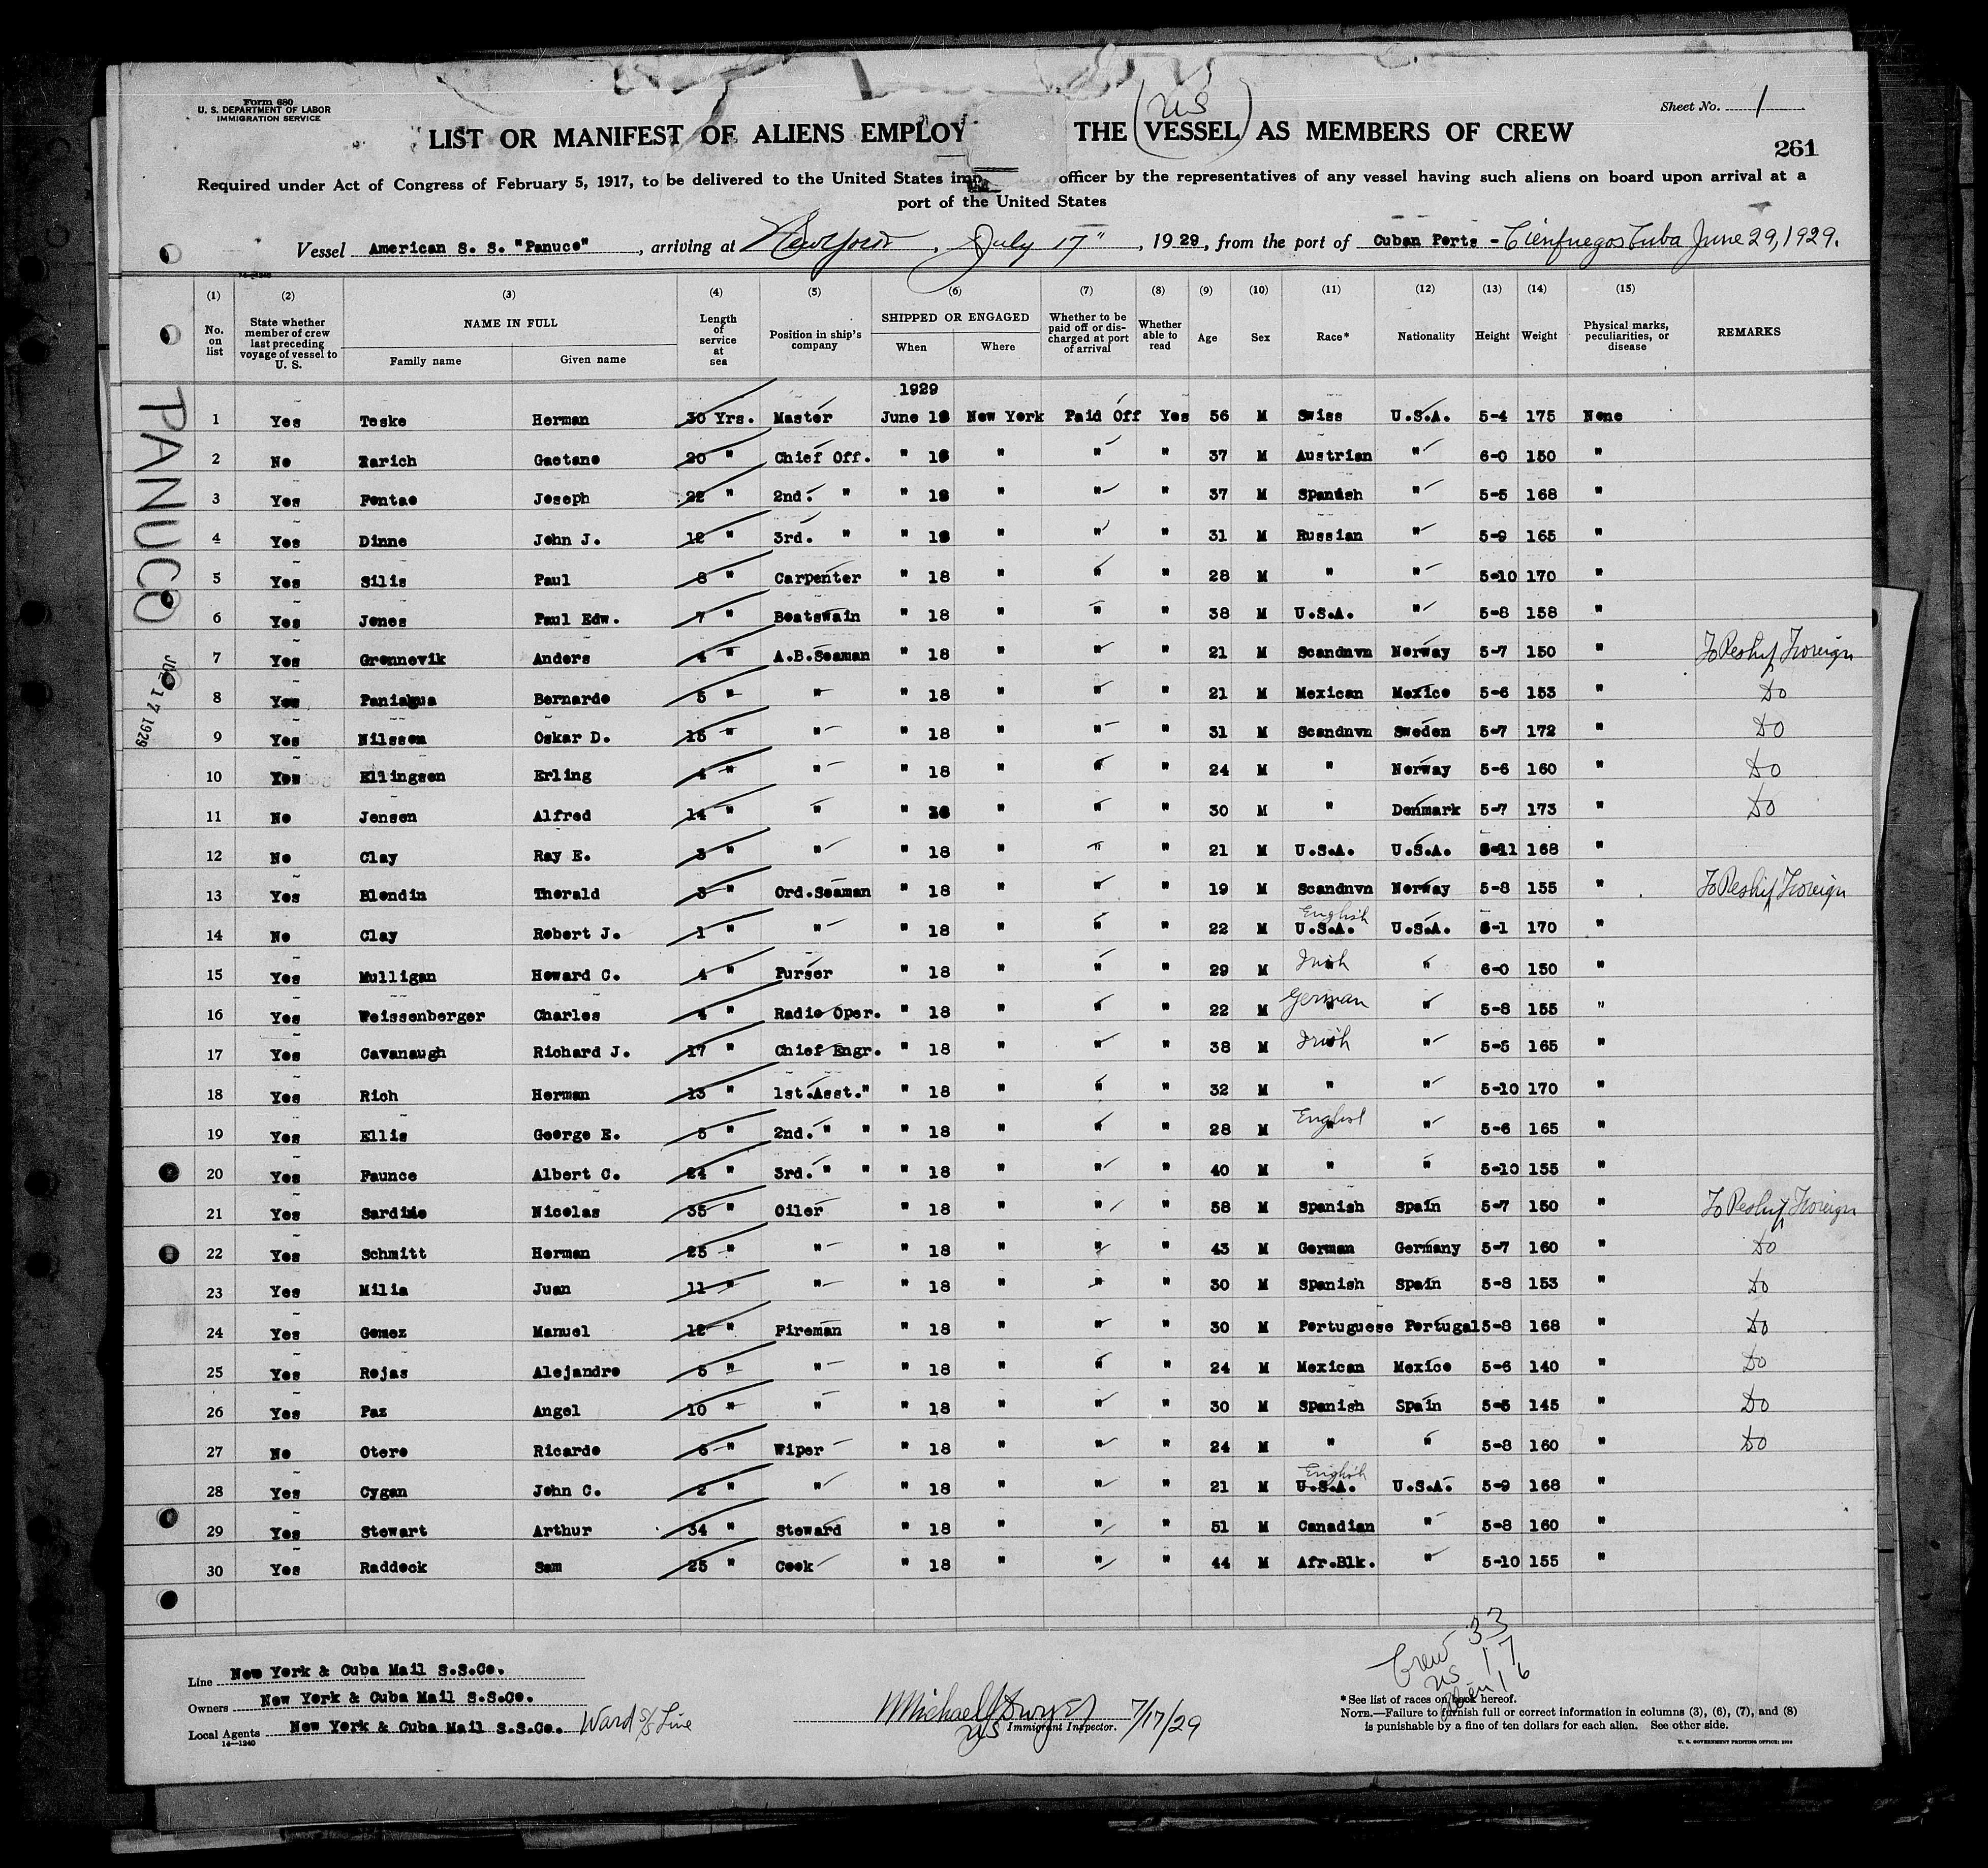 Form 680
U. S. DEPARTMENT OF LABOR
IMMIGRATION SERVICE
(US)
Sheet No. 1
LIST OR MANIFEST OF ALIENS EMPLOY THE VESSEL AS MEMBERS OF CREW
261
Required under Act of Congress of February 5, 1917, to be delivered to the United States officer by the representatives of any vessel having such aliens on board upon arrival at a
port of the United States
Vessel American S. S. "Panuco", arriving at New York, July 17", 1929, from the port of Cuban Ports - Cienfuegos Cuba June 29, 1929.
14-1240
(1) (2) (3) (4) (5) (6) (7) (8) (9) (10) (11) (12) (13) (14) (15)
No. on list | State whether member of crew last preceding voyage of vessel to U. S. | NAME IN FULL Family name Given name | Length of service at sea | Position in ship's company | SHIPPED OR ENGAGED When Where | Whether to be paid off or discharged at port of arrival | Whether able to read | Age | Sex | Race* | Nationality | Height | Weight | Physical marks, peculiarities, or disease | REMARKS
PANUCO
JUL 17 1929
1929
1 Yes Teske Herman 30 Yrs. Master June 18 New York Paid Off Yes 56 M Swiss U.S.A. 5-4 175 None
2 No Zarich Gaetano 20 " Chief Off. " 18 " " " 37 M Austrian " 6-0 150 "
3 Yes Pentao Joseph 22 " 2nd. " " 18 " " " 37 M Spanish " 5-5 168 "
4 Yes Dinne John J. 12 " 3rd. " " 18 " " " 31 M Russian " 5-9 165 "
5 Yes Silis Paul 8 " Carpenter " 18 " " " 28 M " " 5-10 170 "
6 Yes Jones Paul Edw. 7 " Boatswain " 18 " " " 38 M U.S.A. " 5-8 158 "
7 Yes Gronnevik Anders 4 " A.B.Seaman " 18 " " " 21 M Scandnvn Norway 5-7 150 " To Reship Foreign
8 Yes Paniagua Bernardo 5 " " " 18 " " " 21 M Mexican Mexico 5-6 153 " Do
9 Yes Nilsson Oskar D. 15 " " " 18 " " " 31 M Scandnvn Sweden 5-7 172 " Do
10 Yes Ellingsen Erling 4 " " " 18 " " " 24 M " Norway 5-6 160 " Do
11 No Jensen Alfred 14 " " " " " " 30 M " Denmark 5-7 173 " Do
12 No Clay Ray E. 3 " " " 18 " " " 21 M U.S.A. U.S.A. 5-11 168 "
13 Yes Blondin Thorald 3 " Ord.Seaman " 18 " " " 19 M Scandnvn Norway 5-8 155 " To Reship Foreign
14 No Clay Robert J. 1 " " " 18 " " " 22 M English U.S.A. U.S.A. 6-1 170 "
15 Yes Mulligan Howard C. 4 " Purser " 18 " " " 29 M Irish " 6-0 150 "
16 Yes Weissenberger Charles 4 " Radio Oper. " 18 " " " 22 M German " " 5-8 155 "
17 Yes Cavanaugh Richard J. 17 " Chief Engr. " 18 " " " 38 M Irish " 5-5 165 "
18 Yes Rich Herman 13 " 1st.Asst." " 18 " " " 32 M " " 5-10 170 "
19 Yes Ellis George E. 5 " 2nd. " " " 18 " " " 28 M English " " 5-6 165 "
20 Yes Faunce Albert C. 24 " 3rd. " " " 18 " " " 40 M " " 5-10 155 "
21 Yes Nicolas 35 " Oiler " 18 " " " 58 M Spanish Spain 5-7 150 " To Reship Foreign
22 Yes Schmitt Herman 25 " " " 18 " " " 43 M German Germany 5-7 160 " Do
23 Yes Milia Juan 11 " " " 18 " " " 30 M Spanish Spain 5-8 153 " Do
24 Yes Gomez Manuel 12 " Fireman " 18 " " " 30 M Portuguese Portugal 5-8 168 " Do
25 Yes Rojas Alejandro 5 " " " 18 " " " 24 M Mexican Mexico 5-6 140 " Do
26 Yes Paz Angel 10 " " " 18 " " " 30 M Spanish Spain 5-5 145 " Do
27 No Otero Ricardo 6 " Wiper " 18 " " " 24 M " " 5-8 160 " Do
28 Yes Cygan John C. 2 " " " 18 " " " 21 M English U.S.A. U.S.A. 5-9 168 "
29 Yes Stewart Arthur 34 " Steward " 18 " " " 51 M Canadian " 5-8 160 "
30 Yes Raddock Sam 25 " Cook " 18 " " " 44 M Afr.Blk. " 5-10 155 "
Crew 33
US 17
Alien 16
Line New York & Cuba Mail S.S.Co.
Owners New York & Cuba Mail S.S.Co.
Local Agents New York & Cuba Mail S.S.Co. Ward S/S Line
14-1240
Michael J Dwyer
US Immigrant Inspector. 7/17/29
*See list of races on back hereof.
NOTE.—Failure to furnish full or correct information in columns (3), (6), (7), and (8)
is punishable by a fine of ten dollars for each alien. See other side.
U. S. GOVERNMENT PRINTING OFFICE: 1928